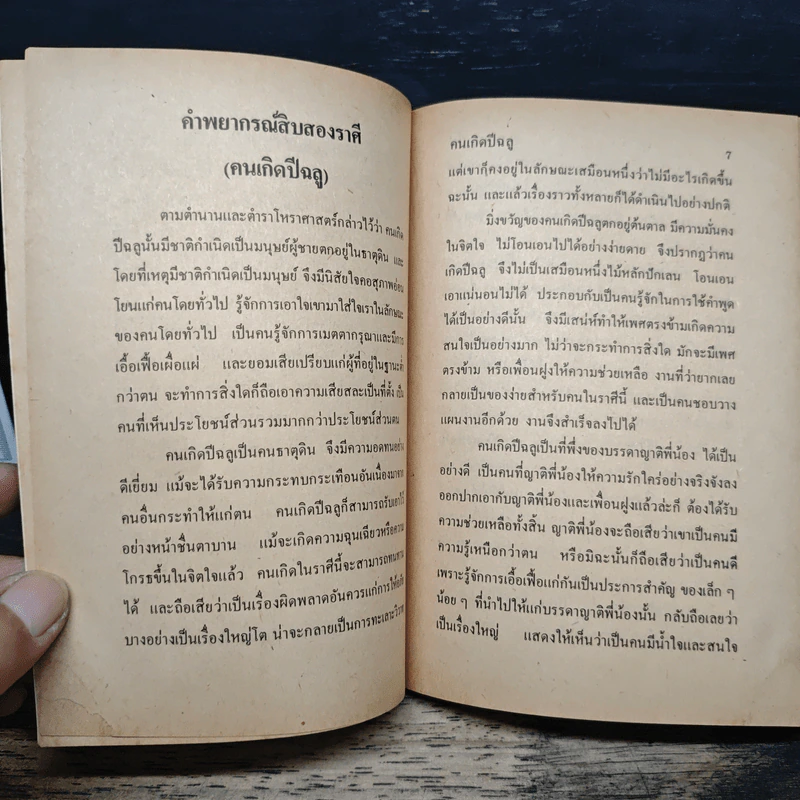 คำพยากรณ์สิบสองราศี
(คนเกิดปีฉลู)
ตามตำนานและตำราโหราศาสตร์กล่าวไว้ว่า คนเกิด
ปีฉลูนั้นมีชาติกำเนิดเป็นมนุษย์ผู้ชายตกอยู่ในธาตุดิน และ
โดยที่เหตุมีชาติกำเนิดเป็นมนุษย์ จึงมีนิสัยใจคอสุภาพอ่อน
โยนแก่คนโดยทั่วไป รู้จักการเอาใจเขามาใส่ใจเราในลักษณะ
ของคนโดยทั่วไป เป็นคนรู้จักการเมตตากรุณาและมีการ
เอื้อเฟื้อเผื่อแผ่ และยอมเสียเปรียบแก่ผู้ที่อยู่ในฐานะต่ำ
กว่าตน จะทำการสิ่งใดก็ถือเอาความเสียสละเป็นที่ตั้ง เป็น
คนที่เห็นประโยชน์ส่วนรวมมากกว่าประโยชน์ส่วนตน
คนเกิดปีฉลูเป็นคนธาตุดิน จึงมีความอดทนอย่าง
ดีเยี่ยม แม้จะได้รับความกระทบกระเทือนอันเนื่องมาจาก
คนอื่นกระทำให้แก่ตน คนเกิดปีฉลูก็สามารถรับเอาไว้
อย่างหน้าชื่นตาบาน แม้จะเกิดความฉุนเฉียวหรือความ
โกรธขึ้นในจิตใจแล้ว คนเกิดในราศีนี้จะสามารถทนทาน
ได้ และถือเสียว่าเป็นเรื่องผิดพลาดอันควรแก่การให้อภัย
บางอย่างเป็นเรื่องใหญ่โต น่าจะกลายเป็นการทะเลาะวิวาท
คนเกิดปีฉลู
7
แต่เขาก็คงอยู่ในลักษณะเสมือนหนึ่งว่าไม่มีอะไรเกิดขึ้น
ฉะนั้น และแล้วเรื่องราวทั้งหลายก็ได้ดำเนินไปอย่างปกติ
มิ่งขวัญของคนเกิดปีฉลูตกอยู่ต้นตาล มีความมั่นคง
ในจิตใจ ไม่โอนเอนไปได้อย่างง่ายดาย จึงปรากฎว่าคน
เกิดปีฉลู จึงไม่เป็นเสมือนหนึ่งไม้หลักปักเลน โอนเอน
เอาแน่นอนไม่ได้ ประกอบกับเป็นคนรู้จักในการใช้คำพูด
ได้เป็นอย่างดีนั้น จึงมีเสน่ห์ทำให้เพศตรงข้ามเกิดความ
สนใจเป็นอย่างมาก ไม่ว่าจะกระทำการสิ่งใด มักจะมีเพศ
ตรงข้าม หรือเพื่อนฝูงให้ความช่วยเหลือ งานที่ว่ายากเลย
กลายเป็นของง่ายสำหรับคนในราศีนี้ และเป็นคนชอบวาง
แผนงานอีกด้วย งานจึงสำเร็จลงไปได้
คนเกิดปีฉลูเป็นที่พึ่งของบรรดาญาติพี่น้อง ได้เป็น
อย่างดี เป็นคนที่ญาติพี่น้องให้ความรักใคร่อย่างจริงจังลง
ออกปากเอากับญาติพี่น้องและเพื่อนฝูงแล้วล่ะก็ ต้องได้รับ
ความช่วยเหลือทั้งสิ้น ญาติพี่น้องจะถือเสียว่าเขาเป็นคนมี
ความรู้เหนือกว่าตน หรือมิฉะนั้นก็ถือเสียว่าเป็นคนดี
เพราะรู้จักการเอื้อเฟื้อแก่กันเป็นประการสำคัญ ของเล็ก ๆ
น้อย ๆ ที่นำไปให้แก่บรรดาญาติพี่น้องนั้น กลับถือเลยว่า
เป็นเรื่องใหญ่ แสดงให้เห็นว่าเป็นคนมีน้ำใจและสนใจ